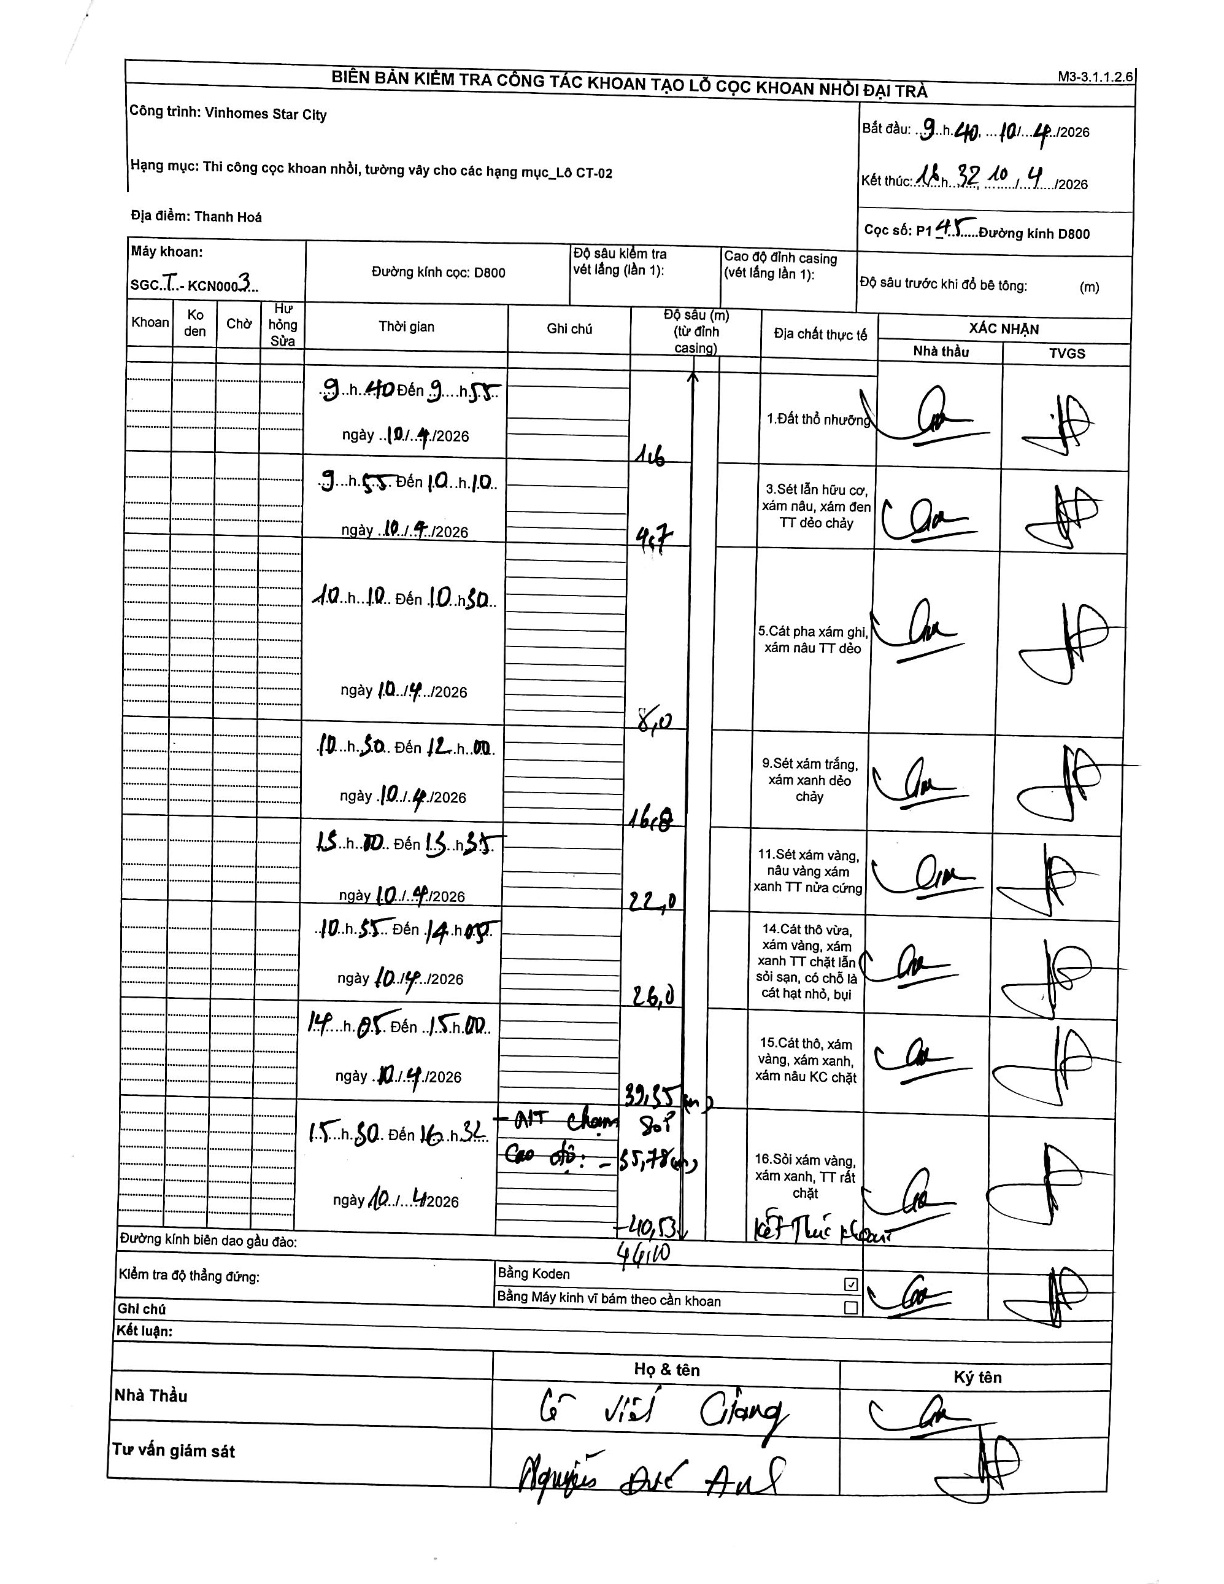 M3-3.1.1.2.6
BIÊN BẢN KIỂM TRA CÔNG TÁC KHOAN TẠO LỖ CỌC KHOAN NHỒI ĐẠI TRÀ
Công trình: Vinhomes Star City
Bắt đầu: ..9..h.40, ...10/...4../2026
Hạng mục: Thi công cọc khoan nhồi, tường vây cho các hạng mục_Lô CT-02
Kết thúc:.16.h..32. 10../..4../2026
Địa điểm: Thanh Hoá
Cọc số: P1 45.....Đường kính D800
Máy khoan:
SGC..T..- KCN0003...
Đường kính cọc: D800
Độ sâu kiểm tra
vét lắng (lần 1):
Cao độ đỉnh casing
(vét lắng lần 1):
Độ sâu trước khi đổ bê tông: (m)
Khoan
Ko
den
Chờ
Hư
hỏng
Sửa
Thời gian
Ghi chú
Độ sâu (m)
(từ đỉnh
casing)
Địa chất thực tế
XÁC NHẬN
Nhà thầu
TVGS
.9..h.40 Đến 9....h.55
ngày ..10./..4./2026
1.6
1.Đất thổ nhưỡng
.9...h.55 Đến 10..h.10..
ngày ..10./.4./2026
4,7
3.Sét lẫn hữu cơ,
xám nâu, xám đen
TT dẻo chảy
10..h..10.. Đến 10..h30..
ngày 10../.4../2026
8,0
5.Cát pha xám ghi,
xám nâu TT dẻo
10...h.30.. Đến 12.h..00.
ngày .10./.4./2026
16,8
9.Sét xám trắng,
xám xanh dẻo
chảy
13..h..00.. Đến 13..h35.
ngày 10./..4./2026
22,0
11.Sét xám vàng,
nâu vàng xám
xanh TT nửa cứng
..10..h.35.. Đến 14.h05.
ngày 10./4../2026
26,0
14.Cát thô vừa,
xám vàng, xám
xanh TT chặt lẫn
sỏi sạn, có chỗ là
cát hạt nhỏ, bụi
14...h.05. Đến ..15.h.00..
ngày ..10./.4./2026
39,35 (m)
15.Cát thô, xám
vàng, xám xanh,
xám nâu KC chặt
15..h.30. Đến 16.h.32
- NT chạm sỏi
Cao độ: -35,78(m)
ngày 10./....4/2026
16.Sỏi xám vàng,
xám xanh, TT rất
chặt
-40,53
Kết Thúc khoan
Đường kính biên dao gầu đào:
44,10
Kiểm tra độ thẳng đứng:
Bằng Koden ☑
Bằng Máy kinh vĩ bám theo cần khoan ☐
Ghi chú
Kết luận:
Họ & tên
Ký tên
Nhà Thầu
Lê Viết Giàng
Tư vấn giám sát
Nguyễn Đức Anh